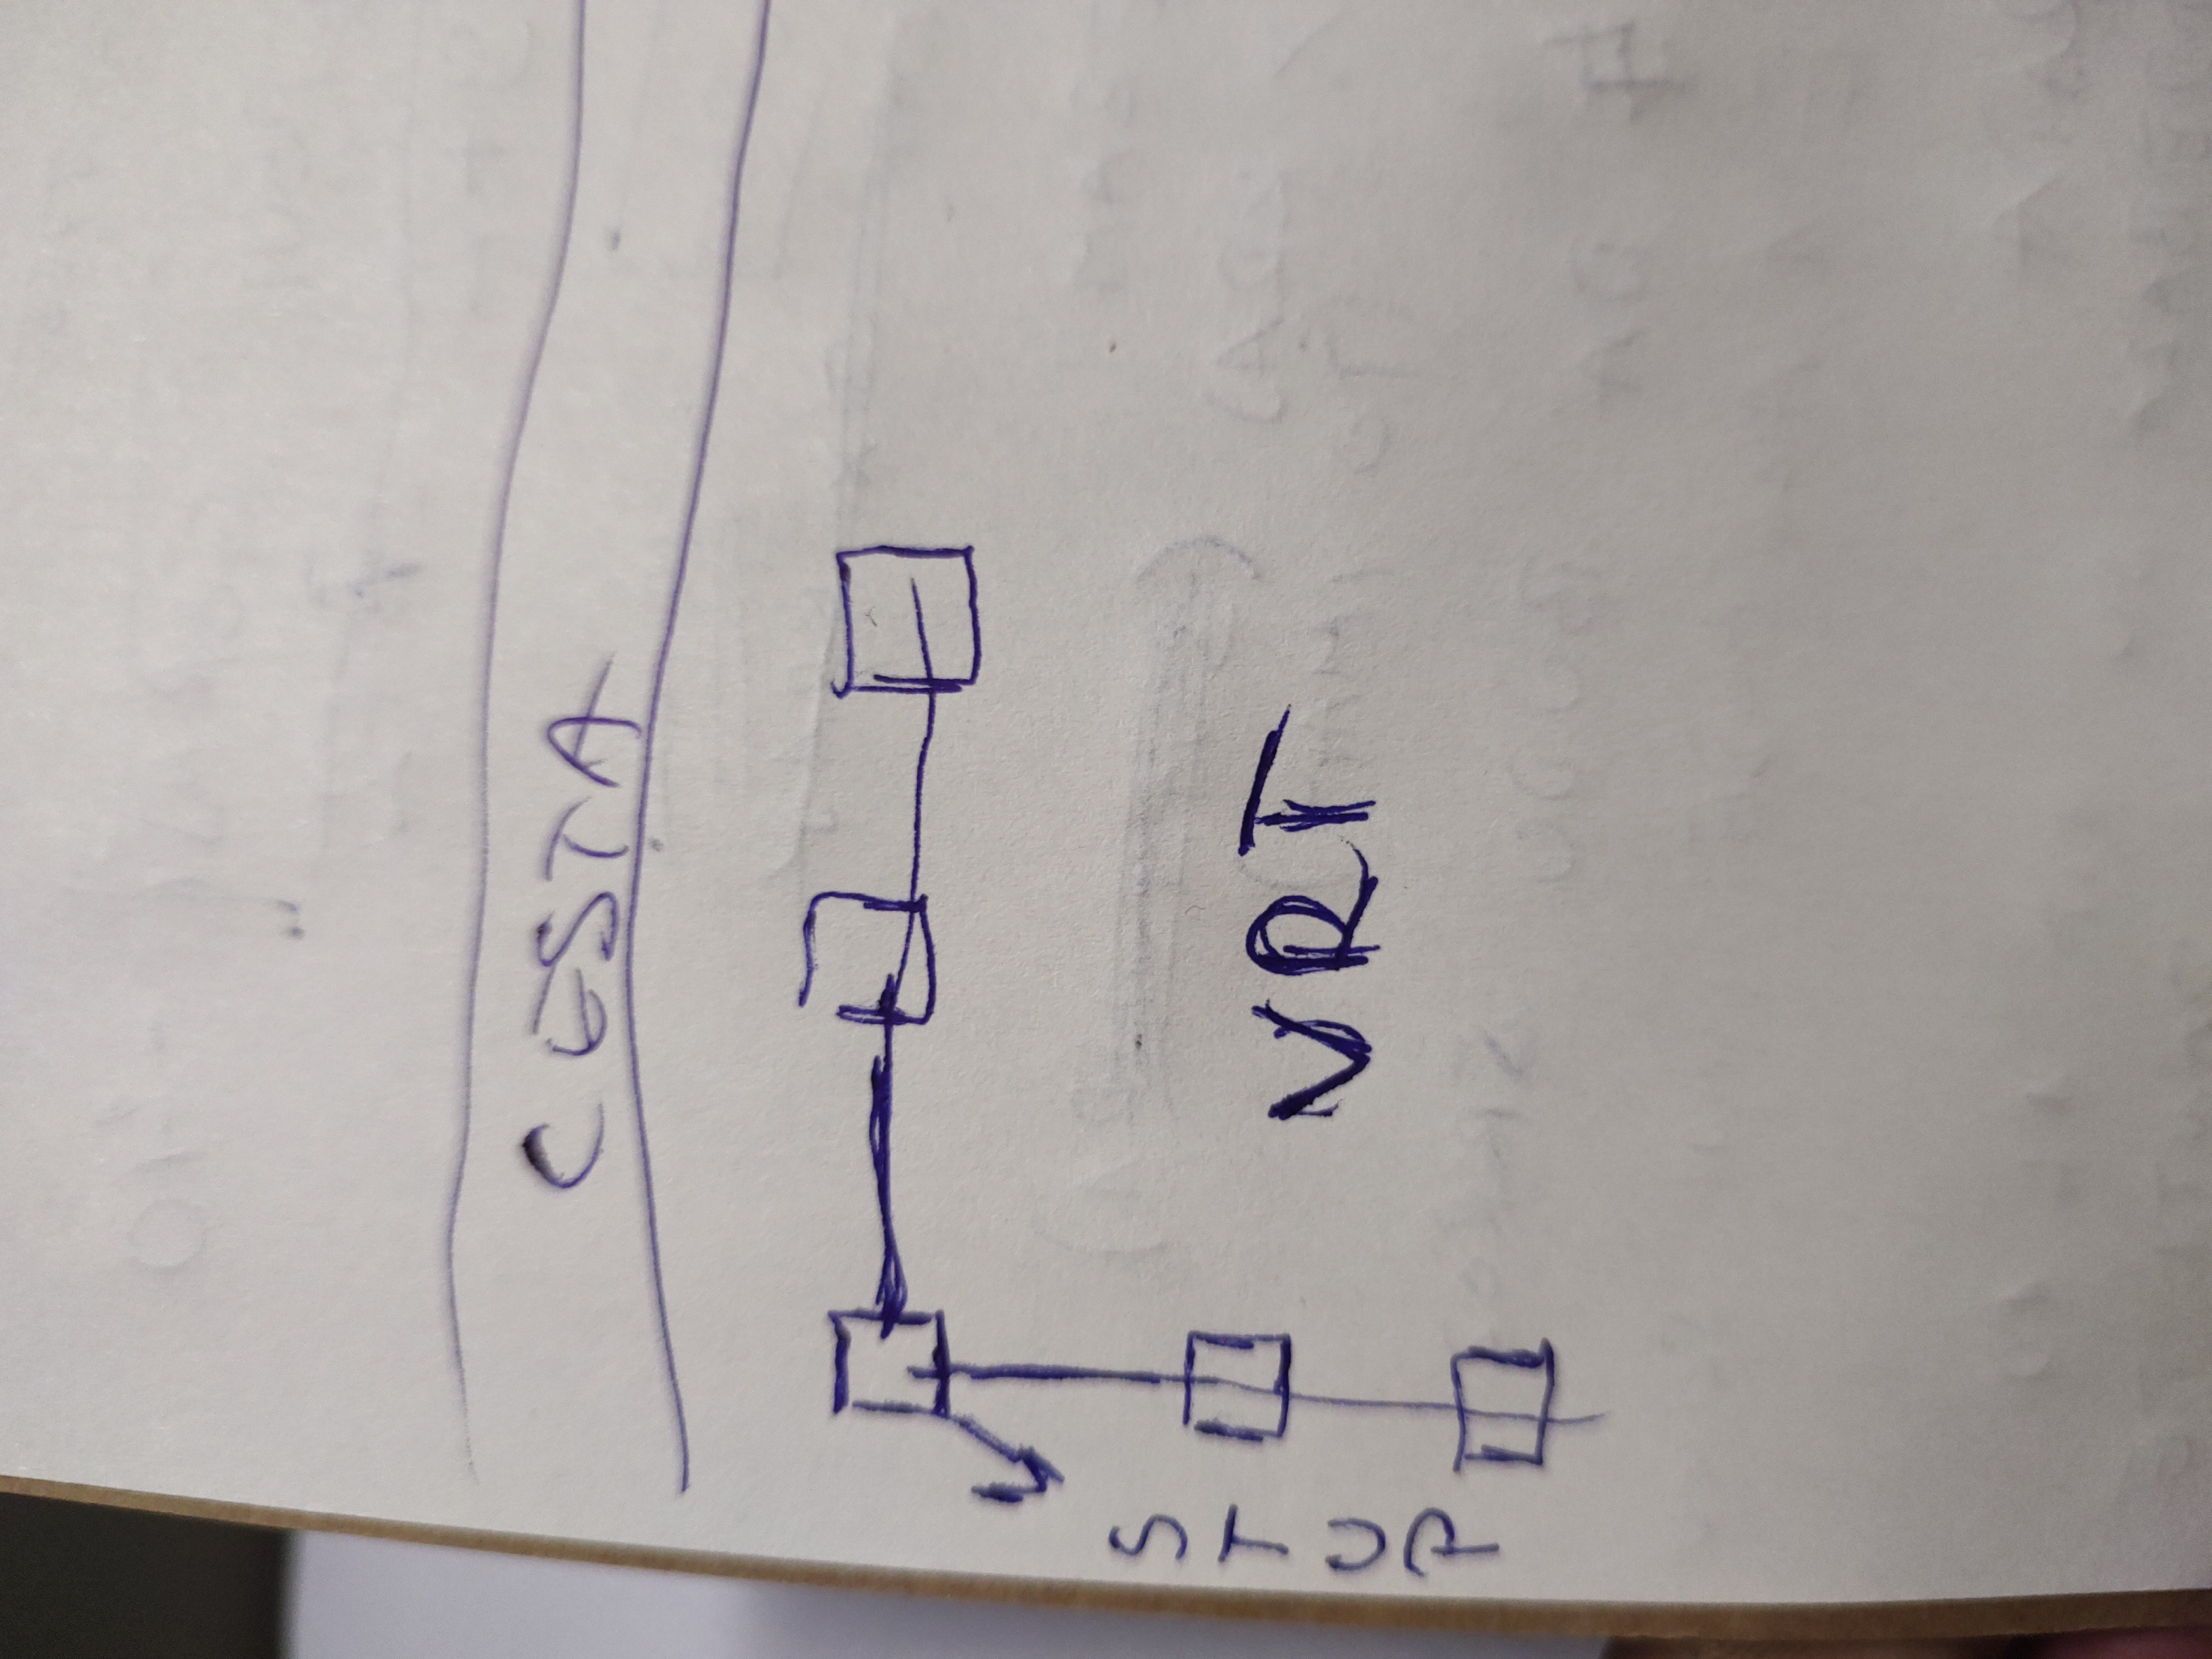 CESTA
STUP
VRT